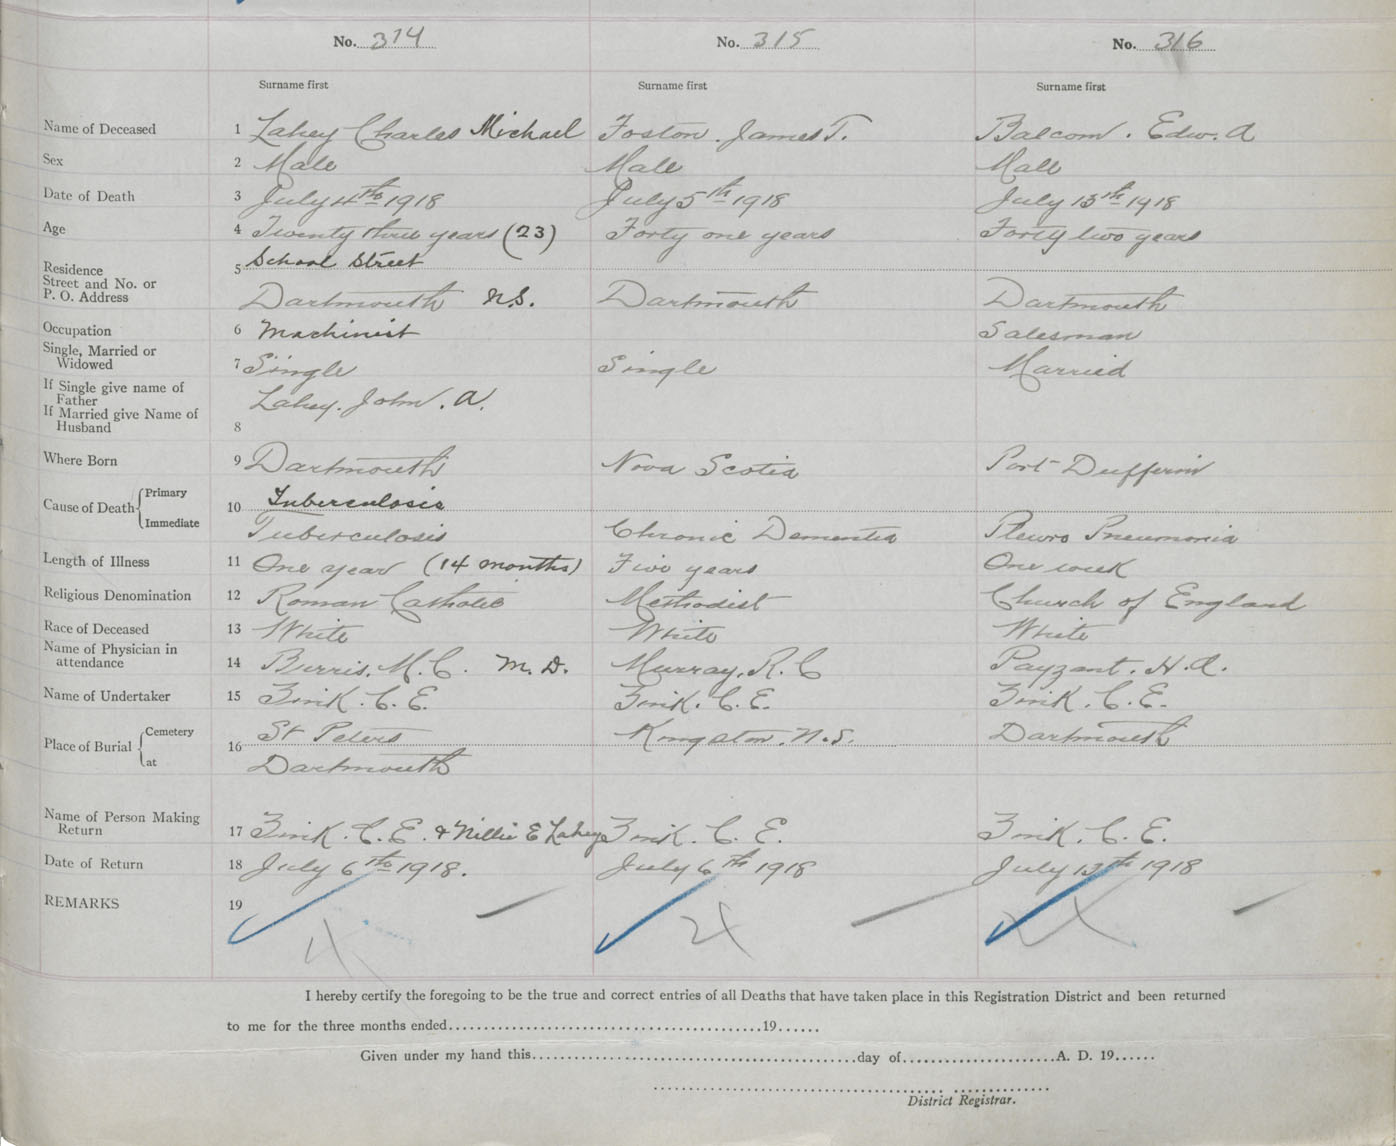 No. 314 No. 315 No. 316
Surname first Surname first Surname first
Name of Deceased 1 Lahey Charles Michael Foston. James T. Balcom. Edw. A
Sex 2 Male Male Male
Date of Death 3 July 4th 1918 July 5th 1918 July 13th 1918
Age 4 Twenty three years (23) Forty one years Forty two years
Residence 5 School Street
Street and No. or
P. O. Address Dartmouth N.S. Dartmouth Dartmouth
Occupation 6 Machinist Salesman
Single, Married or
Widowed 7 Single Single Married
If Single give name of
Father Lahey. John. A.
If Married give Name of
Husband 8
Where Born 9 Dartmouth Nova Scotia Port Dufferin
Cause of Death Primary 10 Tuberculosis
Immediate Tuberculosis Chronic Dementia Pleuro Pneumonia
Length of Illness 11 One year (14 months) Five years One week
Religious Denomination 12 Roman Catholic Methodist Church of England
Race of Deceased 13 White White White
Name of Physician in
attendance 14 Burris. M. C. M. D. Murray. R. C Payzant. H. A.
Name of Undertaker 15 Zink. C. E. Zink. C. E. Zink. C. E.
Place of Burial Cemetery 16 St Peters Kingston. N.S. Dartmouth
at Dartmouth
Name of Person Making
Return 17 Zink. C. E. & Nillie E Lahey Zink. C. E. Zink. C. E.
Date of Return 18 July 6th 1918. July 6th 1918 July 13th 1918
REMARKS 19
4 4 4
I hereby certify the foregoing to be the true and correct entries of all Deaths that have taken place in this Registration District and been returned
to me for the three months ended..........19......
Given under my hand this..........day of..........A. D. 19......
District Registrar.